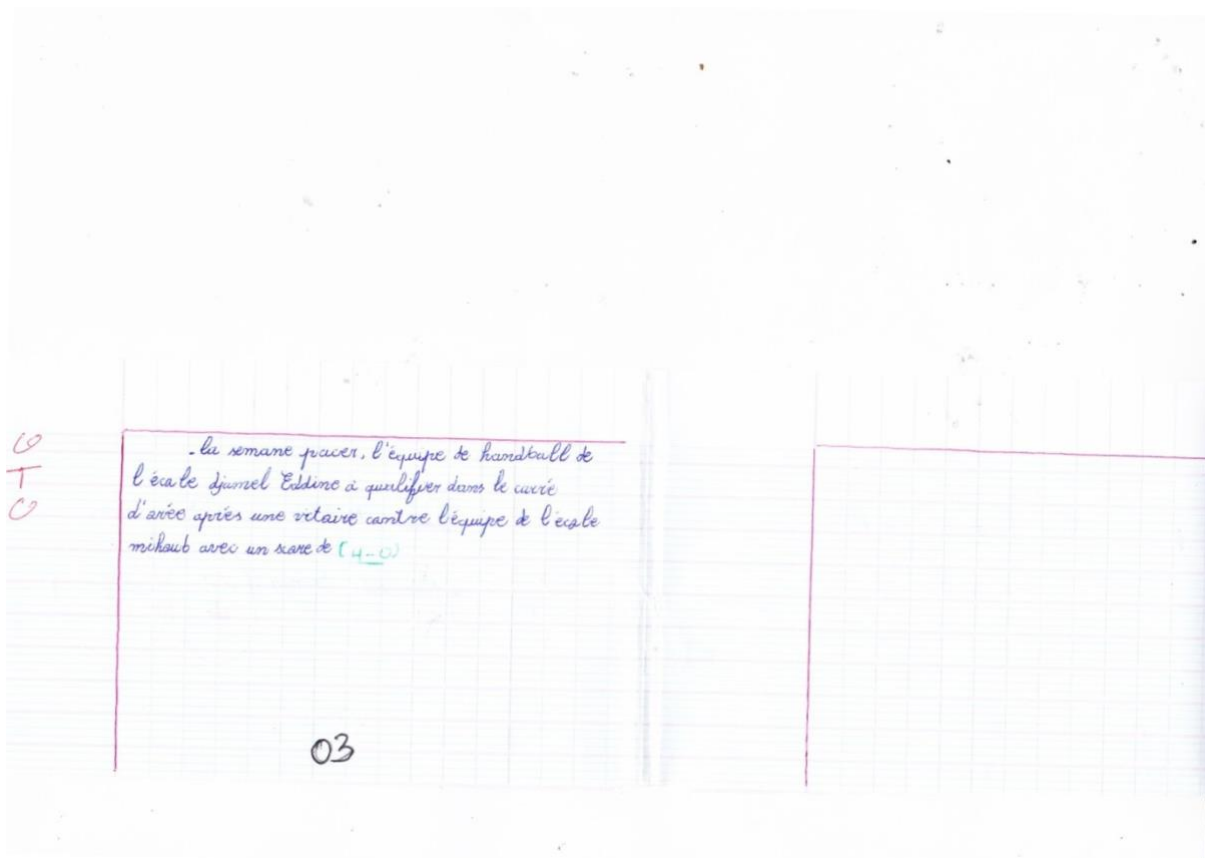 - la semane pacer, l'équipe de handball de
l'école djamel Eddine à qualifier dans le carrè
d'arèe après une vitaire contre l'équipe de l'école
mihoub avec un score de (4-0)
03